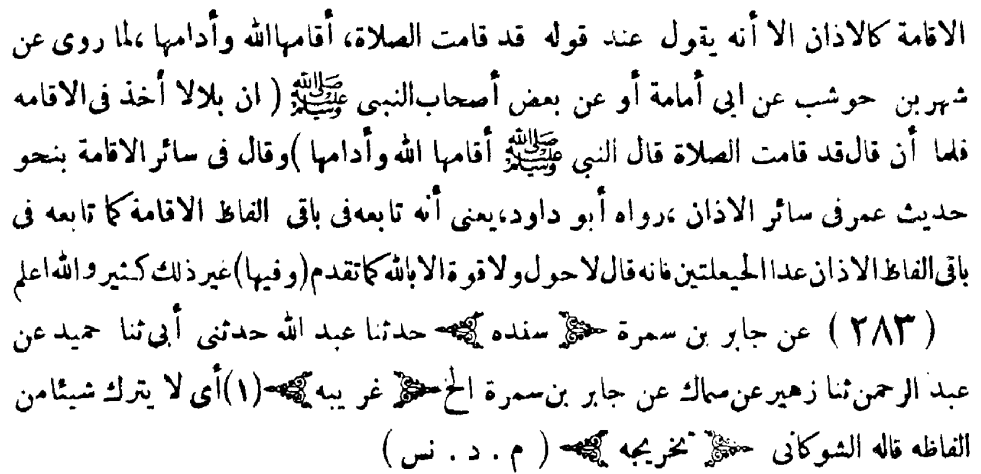 الاقامة كالاذان الا أنه يقول عند قوله قد قامت الصلاة، أقامها الله وأدامها ،لما روى عن
شهر بن حوشب عن ابى أمامة أو عن بعض أصحاب النبى ﷺ ( ان بلالا أخذ فى الاقامه
فلما أن قال قد قامت الصلاة قال النبي ﷺ أقامها الله وأدامها )وقال فى سائر الاقامة بنحو
حديث عمر فى سائر الاذان ،رواه أبو داود،يعنى أنه تابعه فى باقى الفاظ الاقامة كما تابعه فى
باقى الفاظ الاذان عدا الحيعلتين فانه قال لا حول ولا قوة الا بالله كما تقدم (وفيها)غير ذلك كثير والله اعلم
( ٢٨٣ ) عن جابر بن سمرة سنده حدثنا عبد الله حدثنى أبى ثنا حميد عن
عبد الرحمن ثنا زهير عن سماك عن جابر بن سمرة الخ غريبه (١)أى لا يترك شيئا من
الفاظه قاله الشوكانى تخريجه ( م . د . نس )